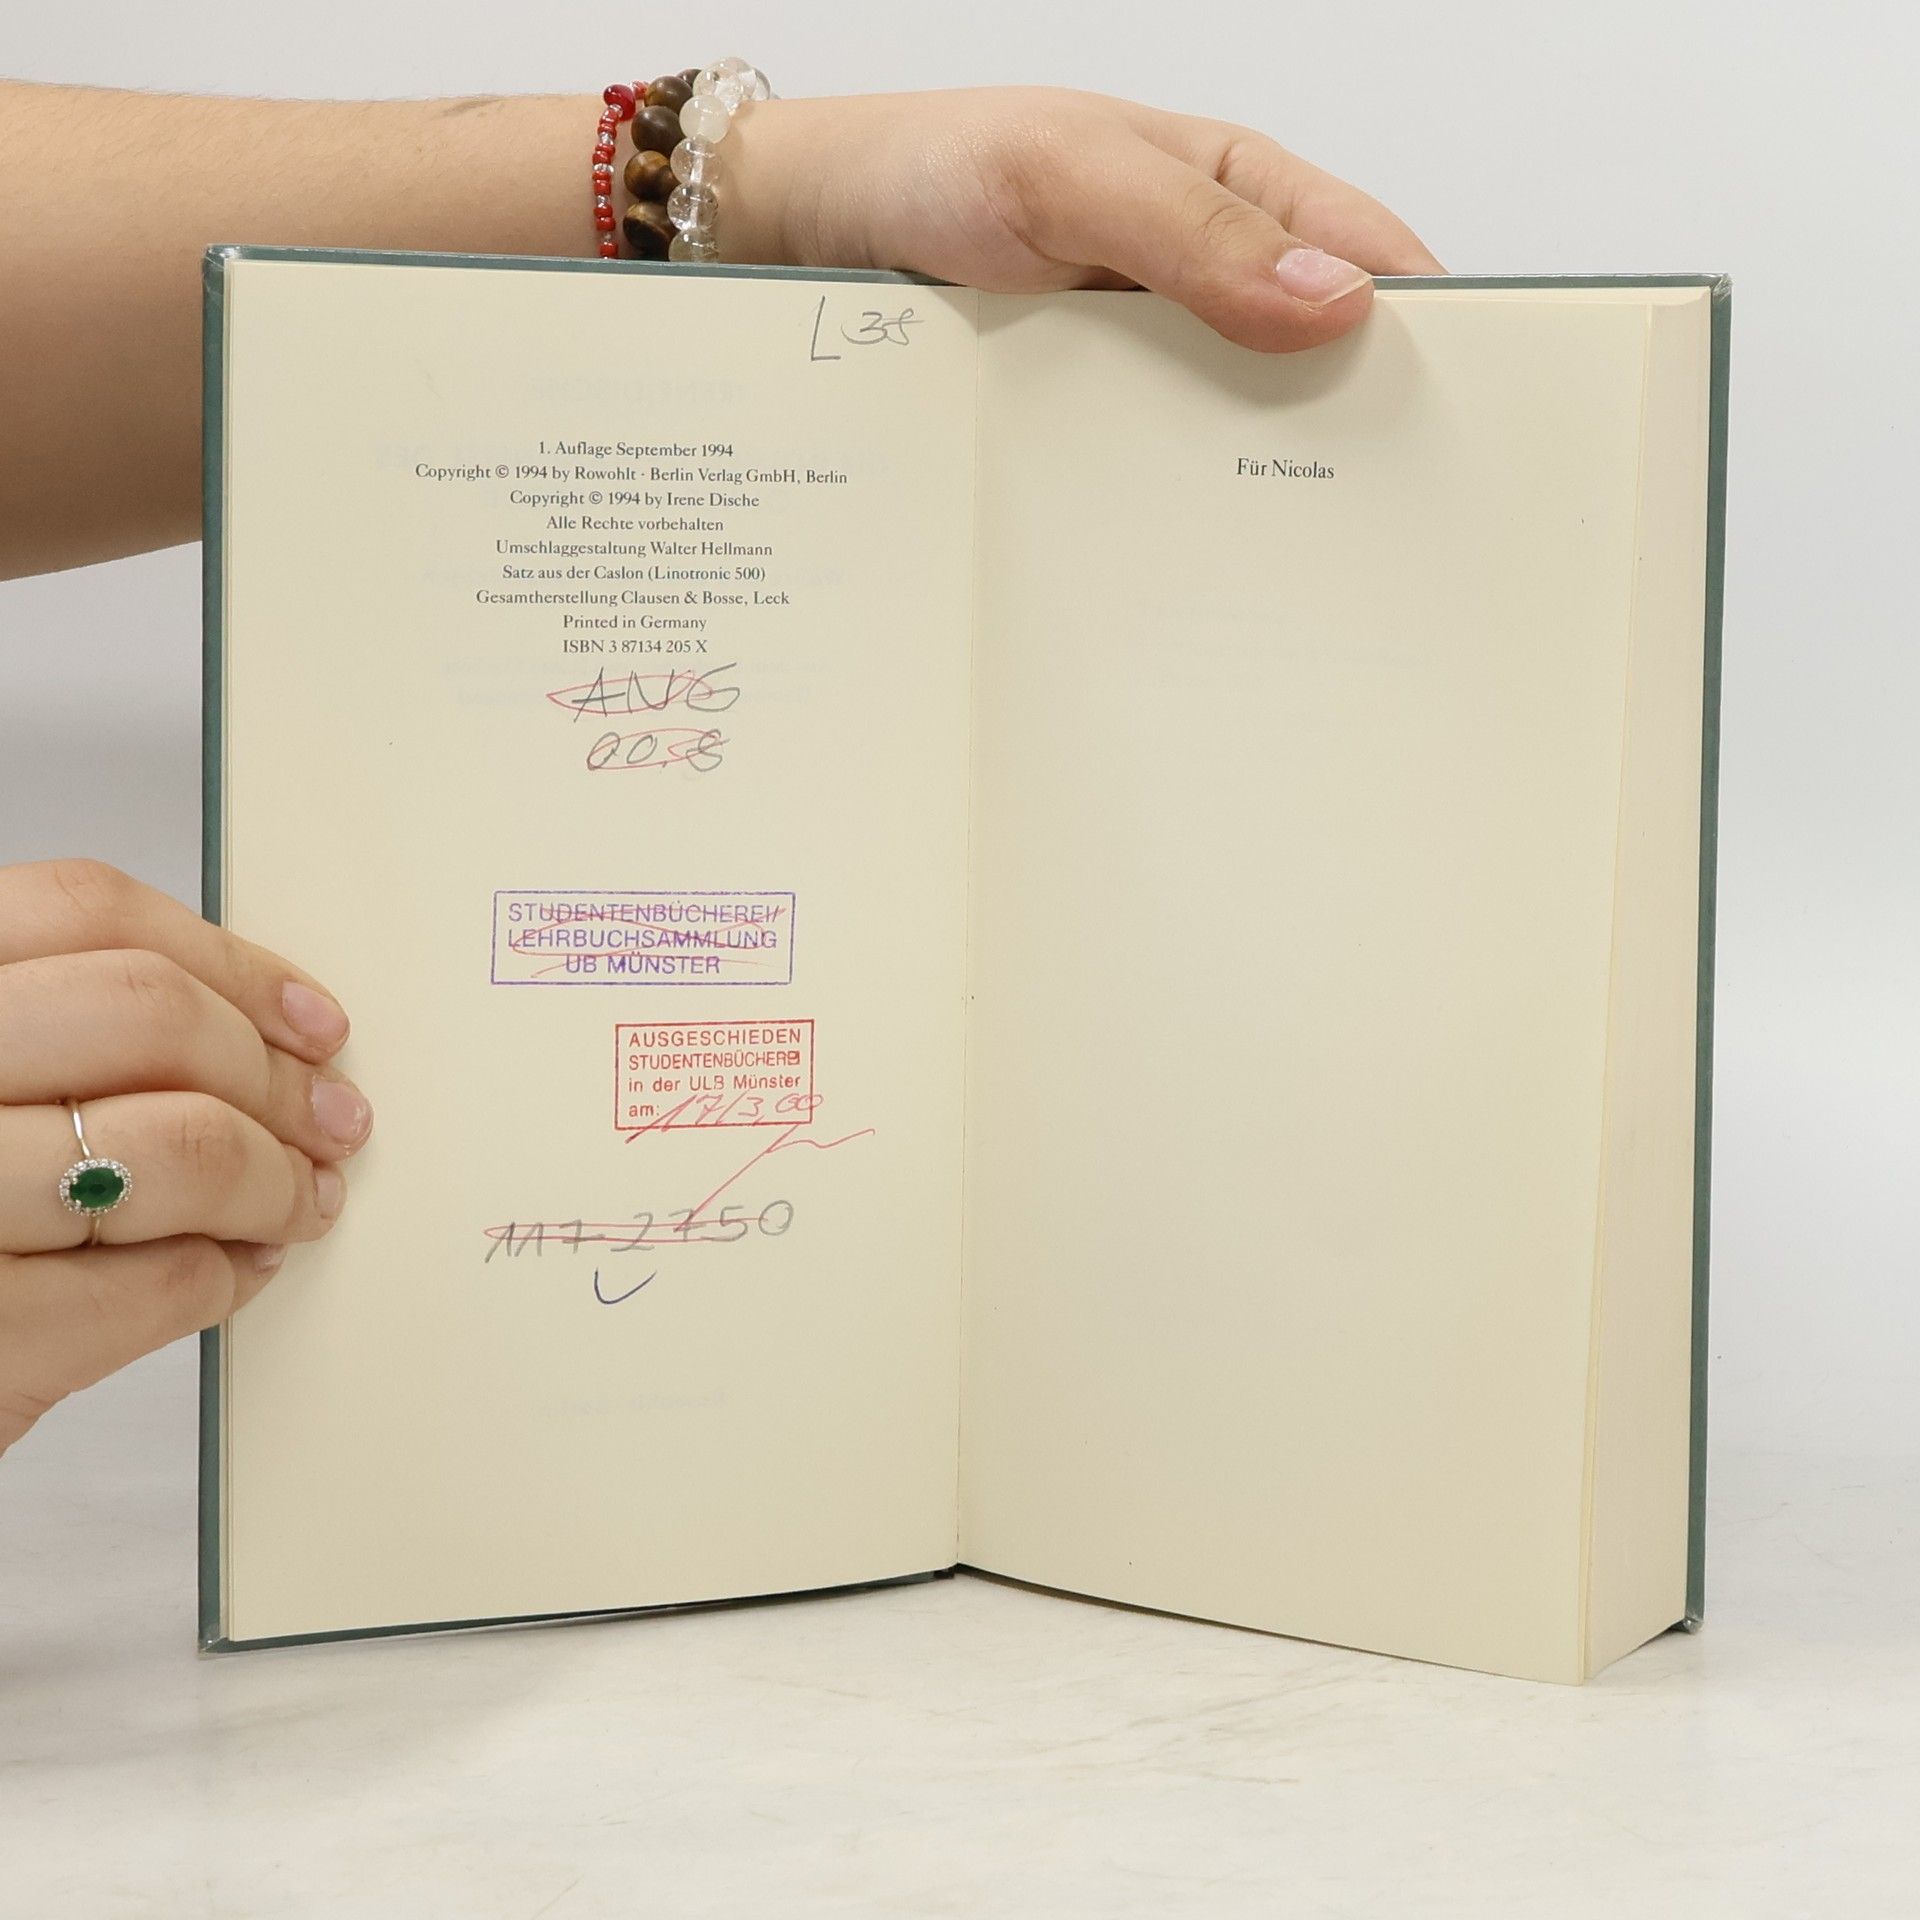 L 38
1. Auflage September 1994
Copyright © 1994 by Rowohlt · Berlin Verlag GmbH, Berlin
Copyright © 1994 by Irene Dische
Alle Rechte vorbehalten
Umschlaggestaltung Walter Hellmann
Satz aus der Caslon (Linotronic 500)
Gesamtherstellung Clausen & Bosse, Leck
Printed in Germany
ISBN 3 87134 205 X
ANG
00.8
STUDENTENBÜCHEREI/
LEHRBUCHSAMMLUNG
UB MÜNSTER
AUSGESCHIEDEN
STUDENTENBÜCHEREI
in der ULB Münster
am: 17/3,00
117-2750
Für Nicolas